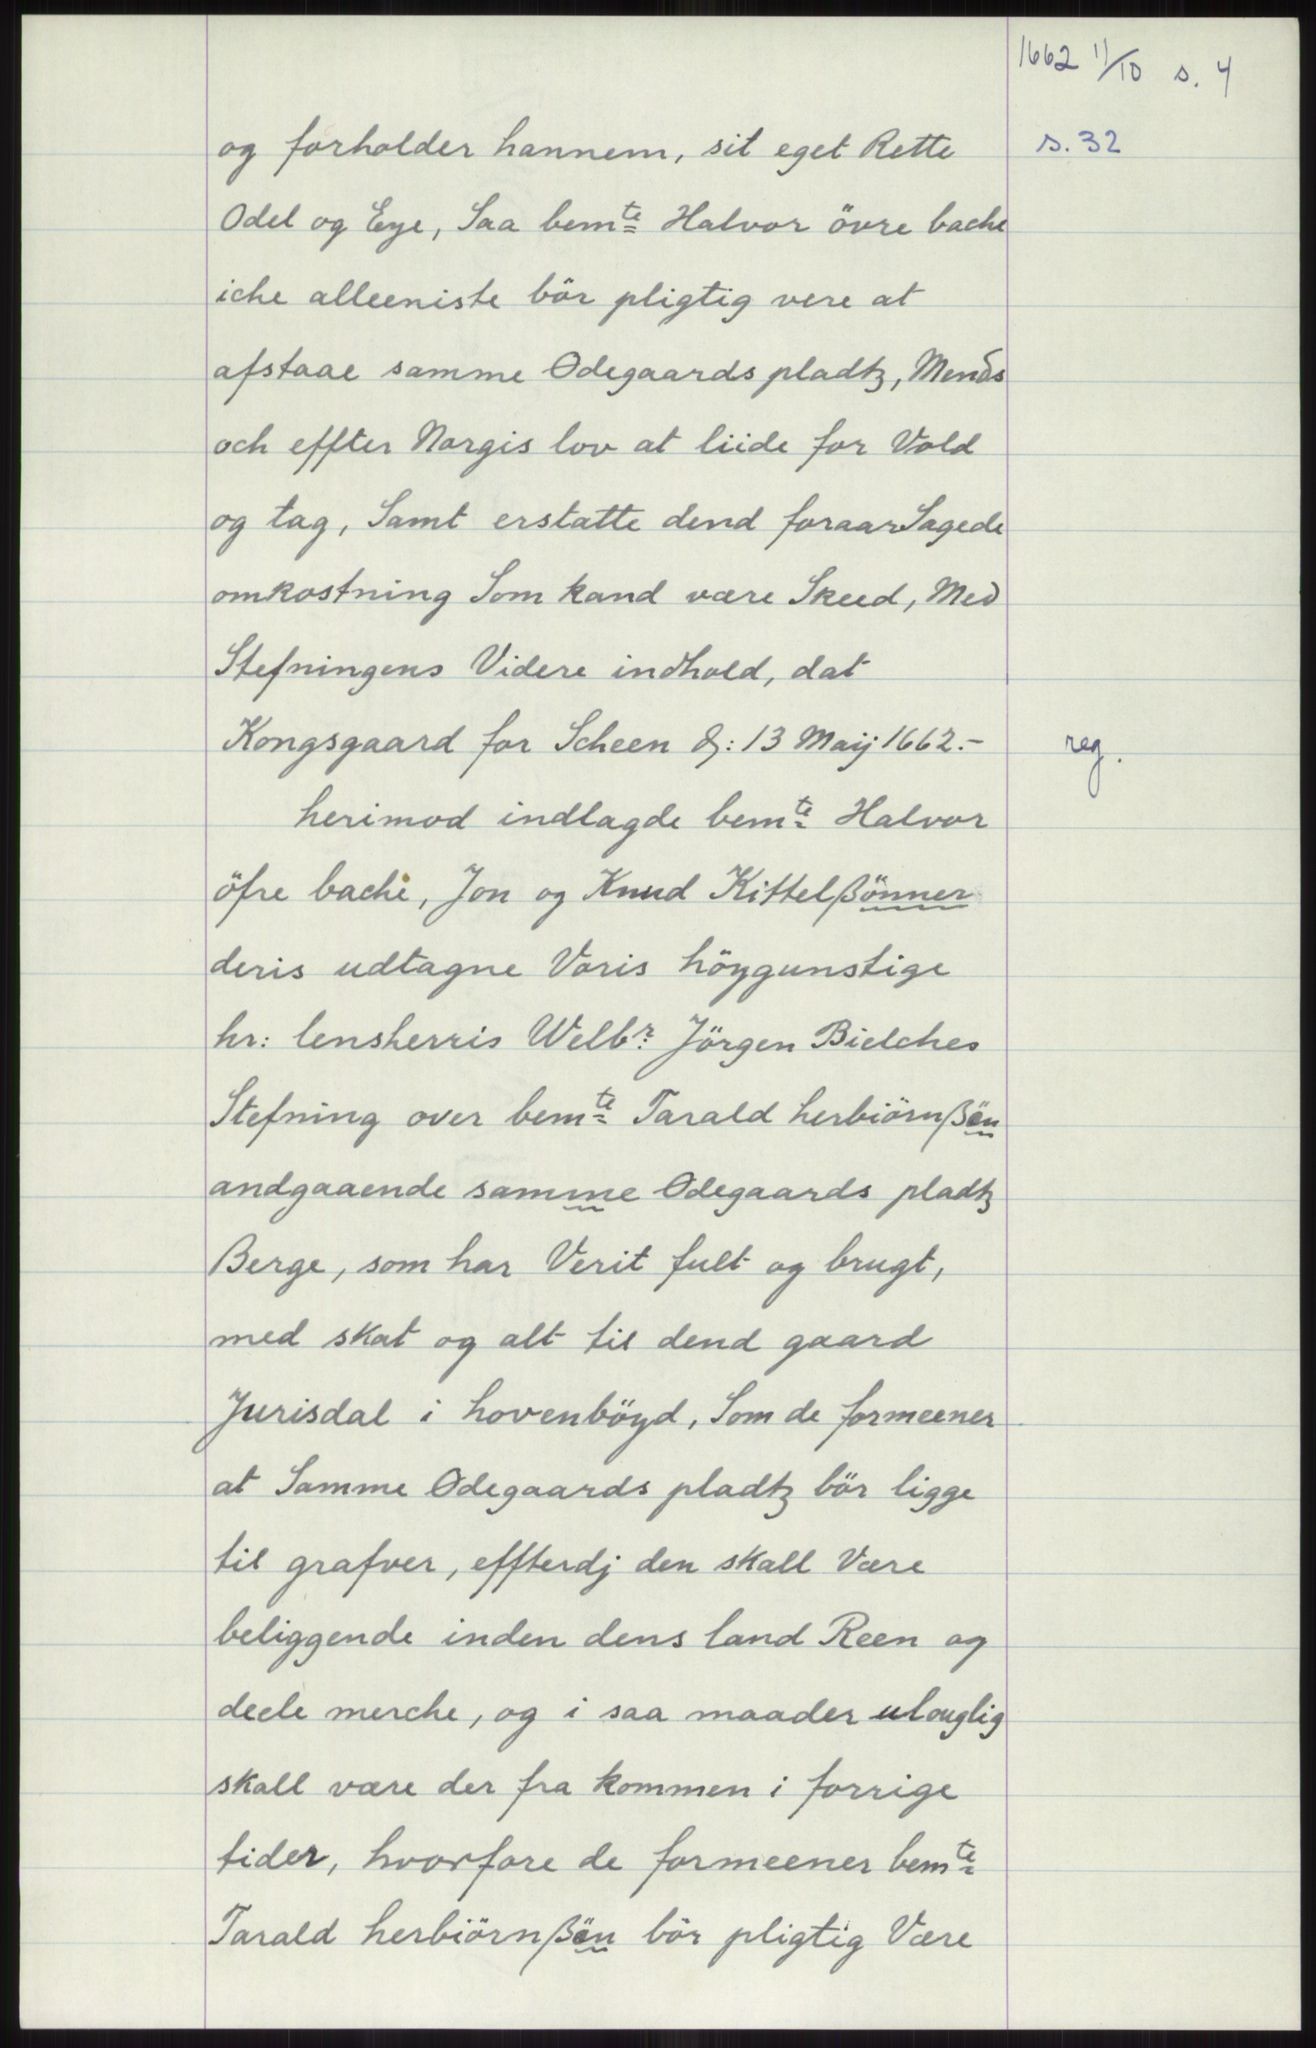 1662 11/10 s. 4
og forholder hannem, sit eget Rette
s. 32
Odel og Eye, Saa bemte Halvor övre bache
iche alleeniste bör pligtig vere at
afstaae samme Ödegaards pladtz, Mens
och effter Norgis lov at liide for Vold
og tag, Samt erstatte dend foraarSagede
omkostning Som kand være Skeed, Med
Stefningens Videre indhold, dat
Kongsgaard for Scheen d: 13 Maij 1662.-
reg.
herimod indlagde bemte Halvor
öfre bache, Jon og Knud Kittelßönner
deris udtagne Voris höygunstige
hr: lensherris Welbr: Jörgen Bielches
Stefning over bemte Tarald herbiörnßön
andgaaende samme Ödegaards pladtz
Berge, som har Verit fult og brugt,
med skat og alt til dend gaard
Jurisdal i hovenböyd, Som de formeener
at Samme Ödegaards pladtz bör ligge
til grafver, effterdj den skall Være
beliggende inden dens land Reen og
deele merche, og i saa maader ulouglig
skall være der fra kommen i forrige
tider, hvorfore de formeener bemte
Tarald herbiörnßön bör pligtig Være